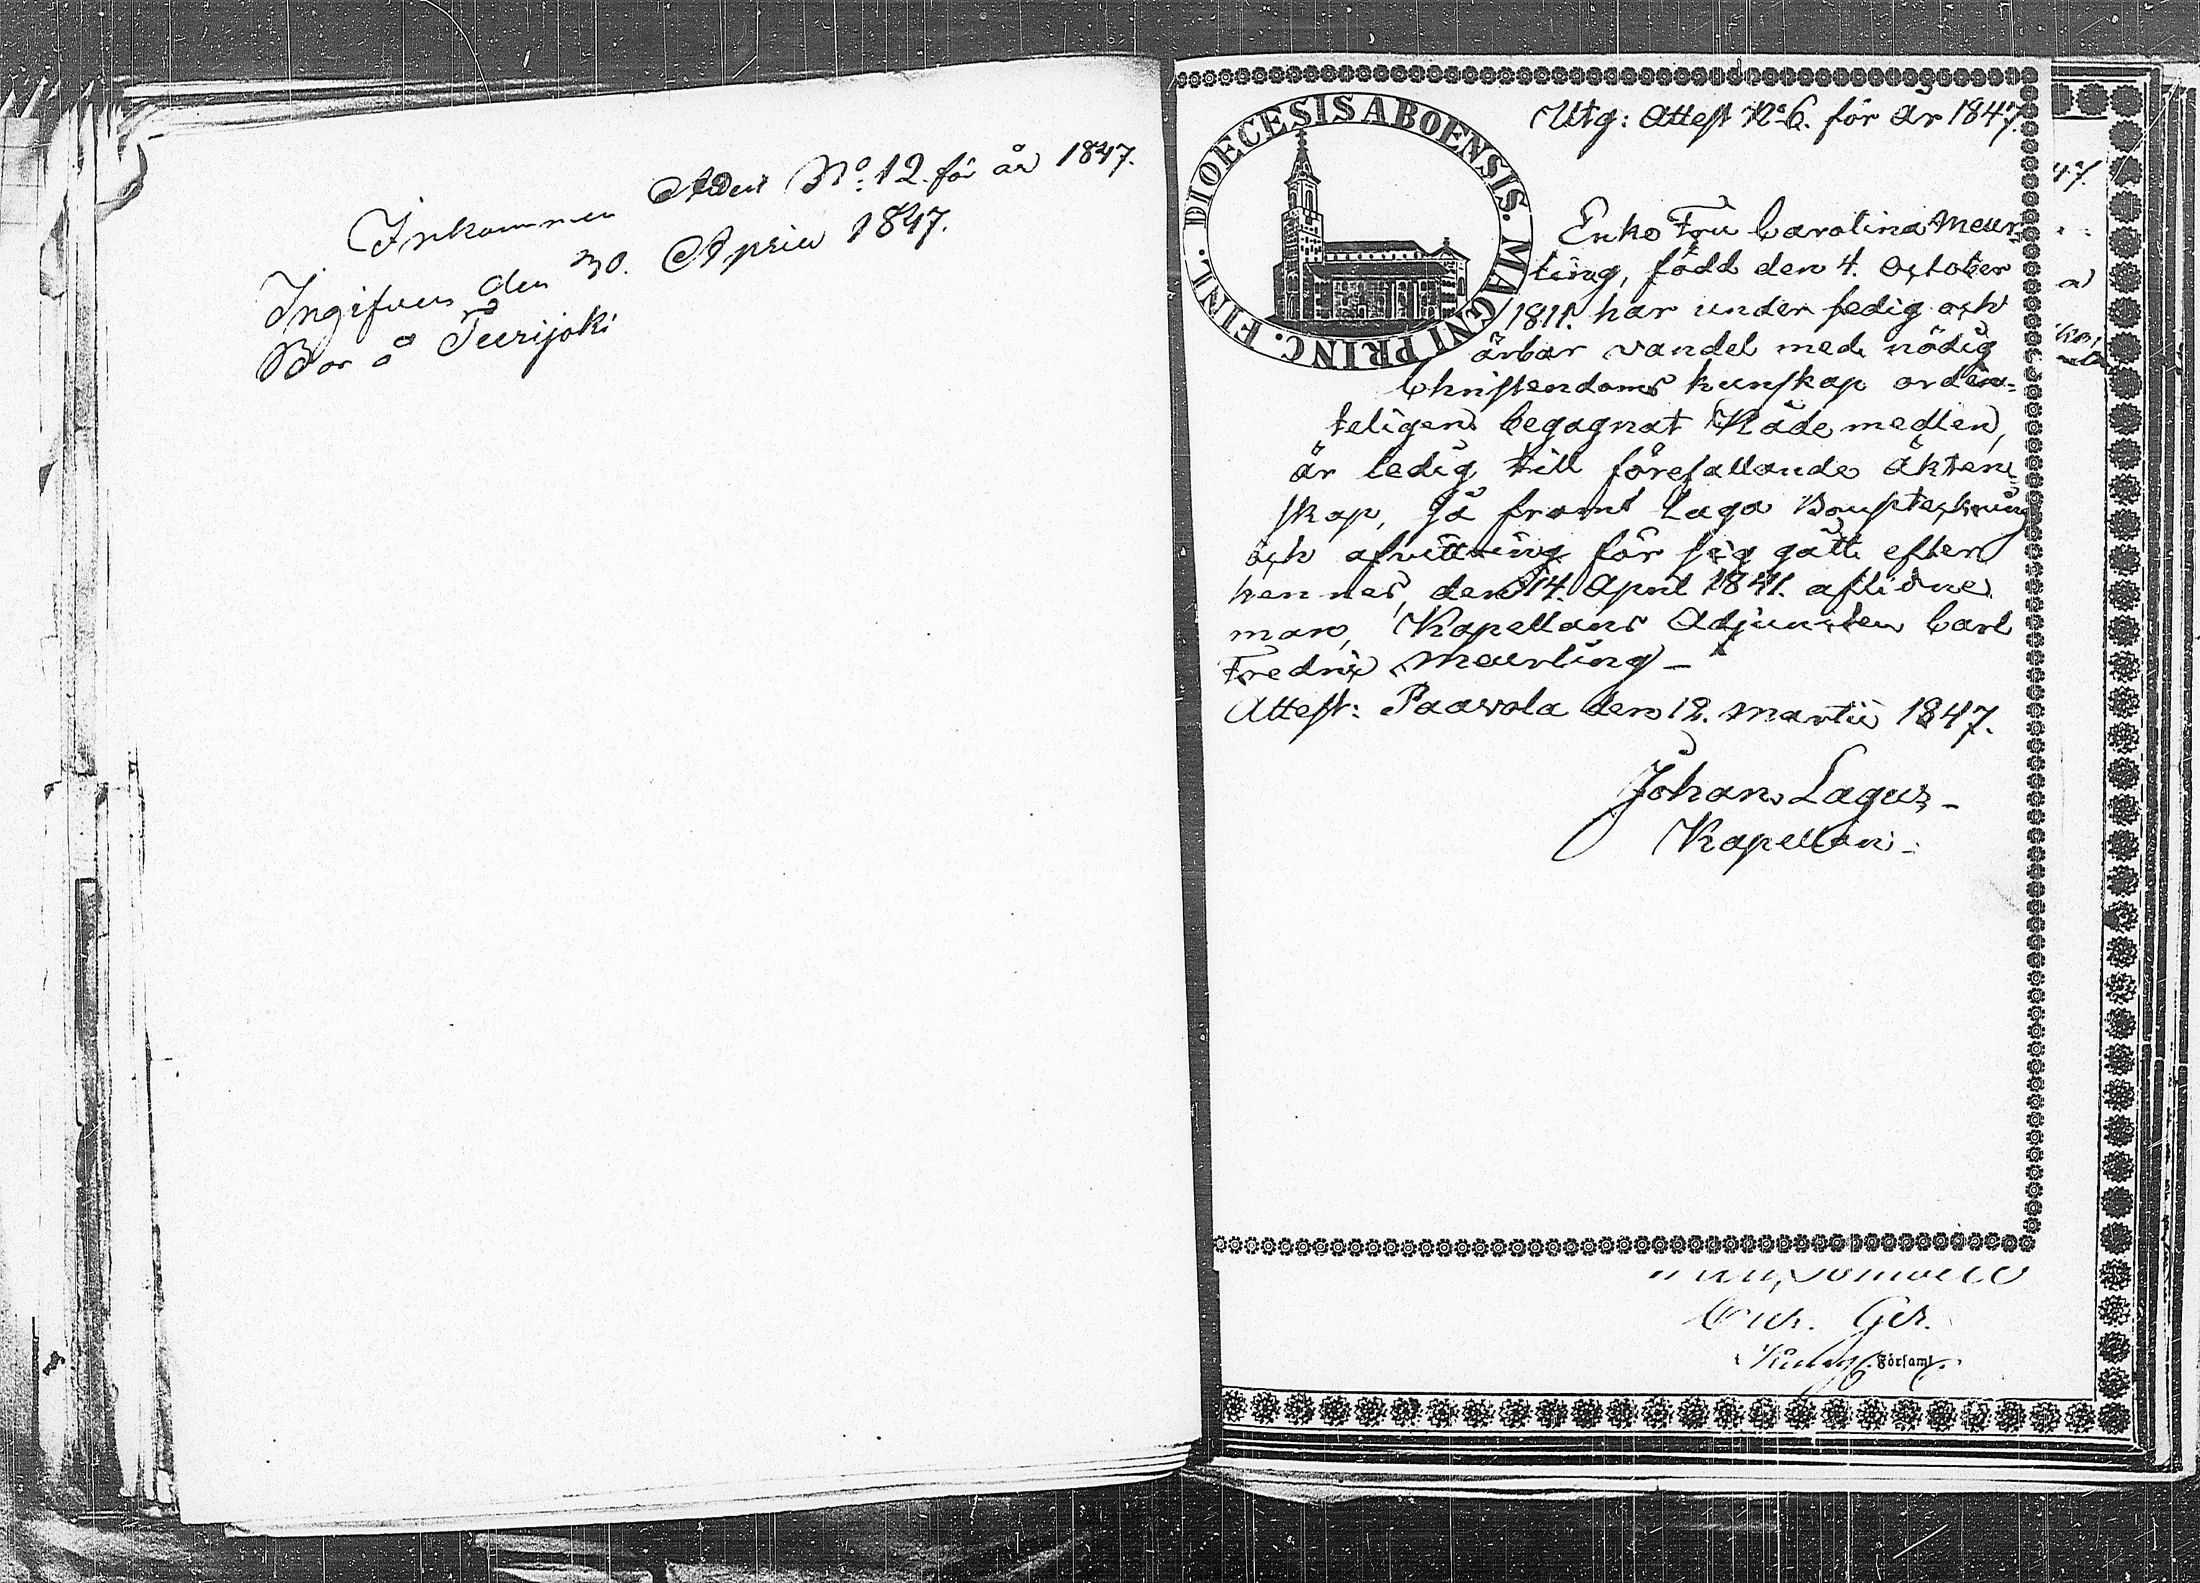 Inkommen Attest No: 12. för år 1847.
Ingifven den 30. April 1847.
Bor å Teerijoki
DIOECESIS ABOENSIS. MAGNI PRINC. FINL.
Utg: Attest No 6. för år 1847.
Enke Fru Carolina Meur-
ling, född den 4. October
1811. har under sedig och
ärbar vandel med nödig
Christendoms kunskap orden-
teligen begagnat Nådemedlen,
är ledig till förefallande äkten-
skap, så framt laga Bouptekning
och afvittring för sig gått efter
hennes, den 14. April 1841. aflidne
man, Kapellans Adjuncten Carl
Fredric Meurling –
Attest: Paavola den 12. Martii 1847.
Johan Lagus –
Kapellan –
47.
Församl.